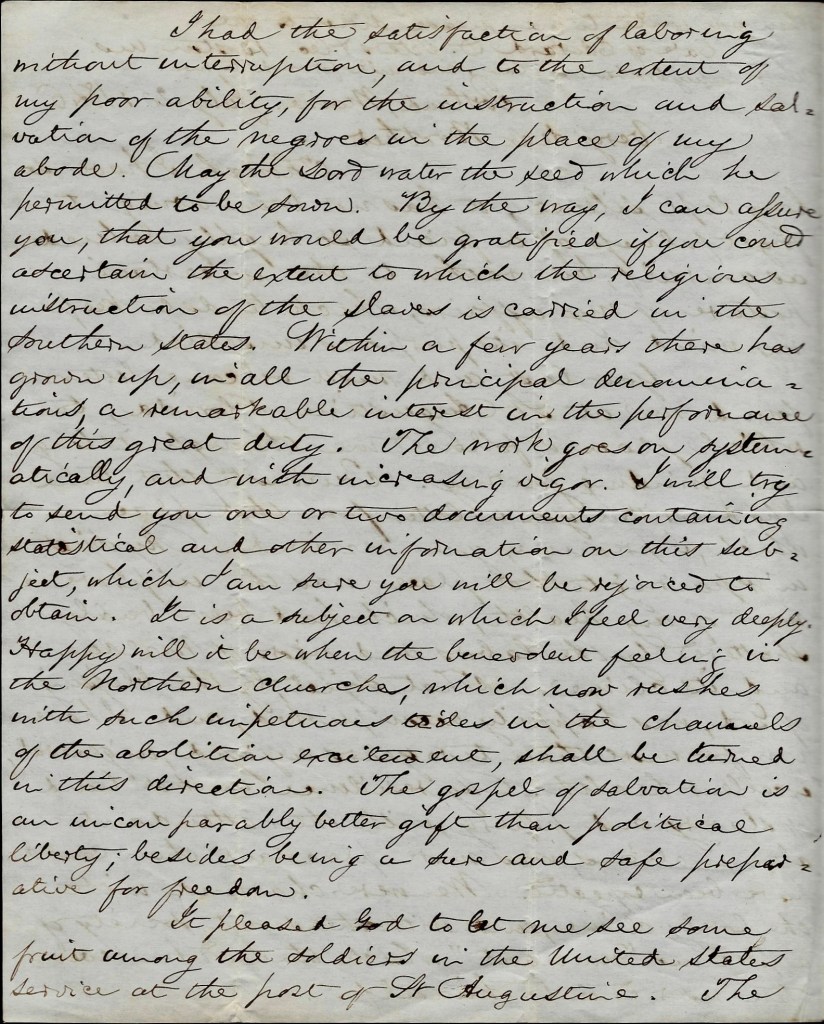 I had the satisfaction of laboring
without interruption, and to the extent of
my poor ability, for the instruction and sal-
vation of the negroes in the place of my
abode. May the Lord water the seed which he
permitted to be sown. By the way, I can assure
you, that you would be gratified if you could
ascertain the extent to which the religious
instruction of the slaves is carried in the
Southern States. Within a few years there has
grown up, in all the principal denomina-
tions, a remarkable interest in the performance
of this great duty. The work goes on system-
atically, and with increasing vigor. I will try
to send you one or two documents containing
statistical and other information on this sub-
ject, which I am sure you will be rejoiced to
obtain. It is a subject on which I feel very deeply.
Happy will it be when the benevolent feeling in
the Northern churches, which now rushes
with such impetuous tides in the channels
of the abolition excitement, shall be turned
in this direction. The gospel of salvation is
an incomparably better gift than political
liberty; besides being a sure and safe prepar-
ative for freedom.
It pleased God to let me see some
fruit among the soldiers in the United States
service at the post of St Augustine. The